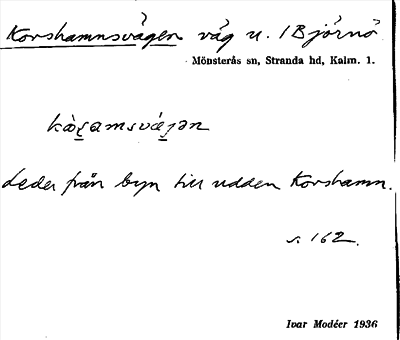 Korshamnsvägen väg u. 1 Björnö
Mönsterås sn, Stranda hd, Kalm. l.
Leder från byn till udden Korshamn.
s. 162.
Ivar Modéer 1936